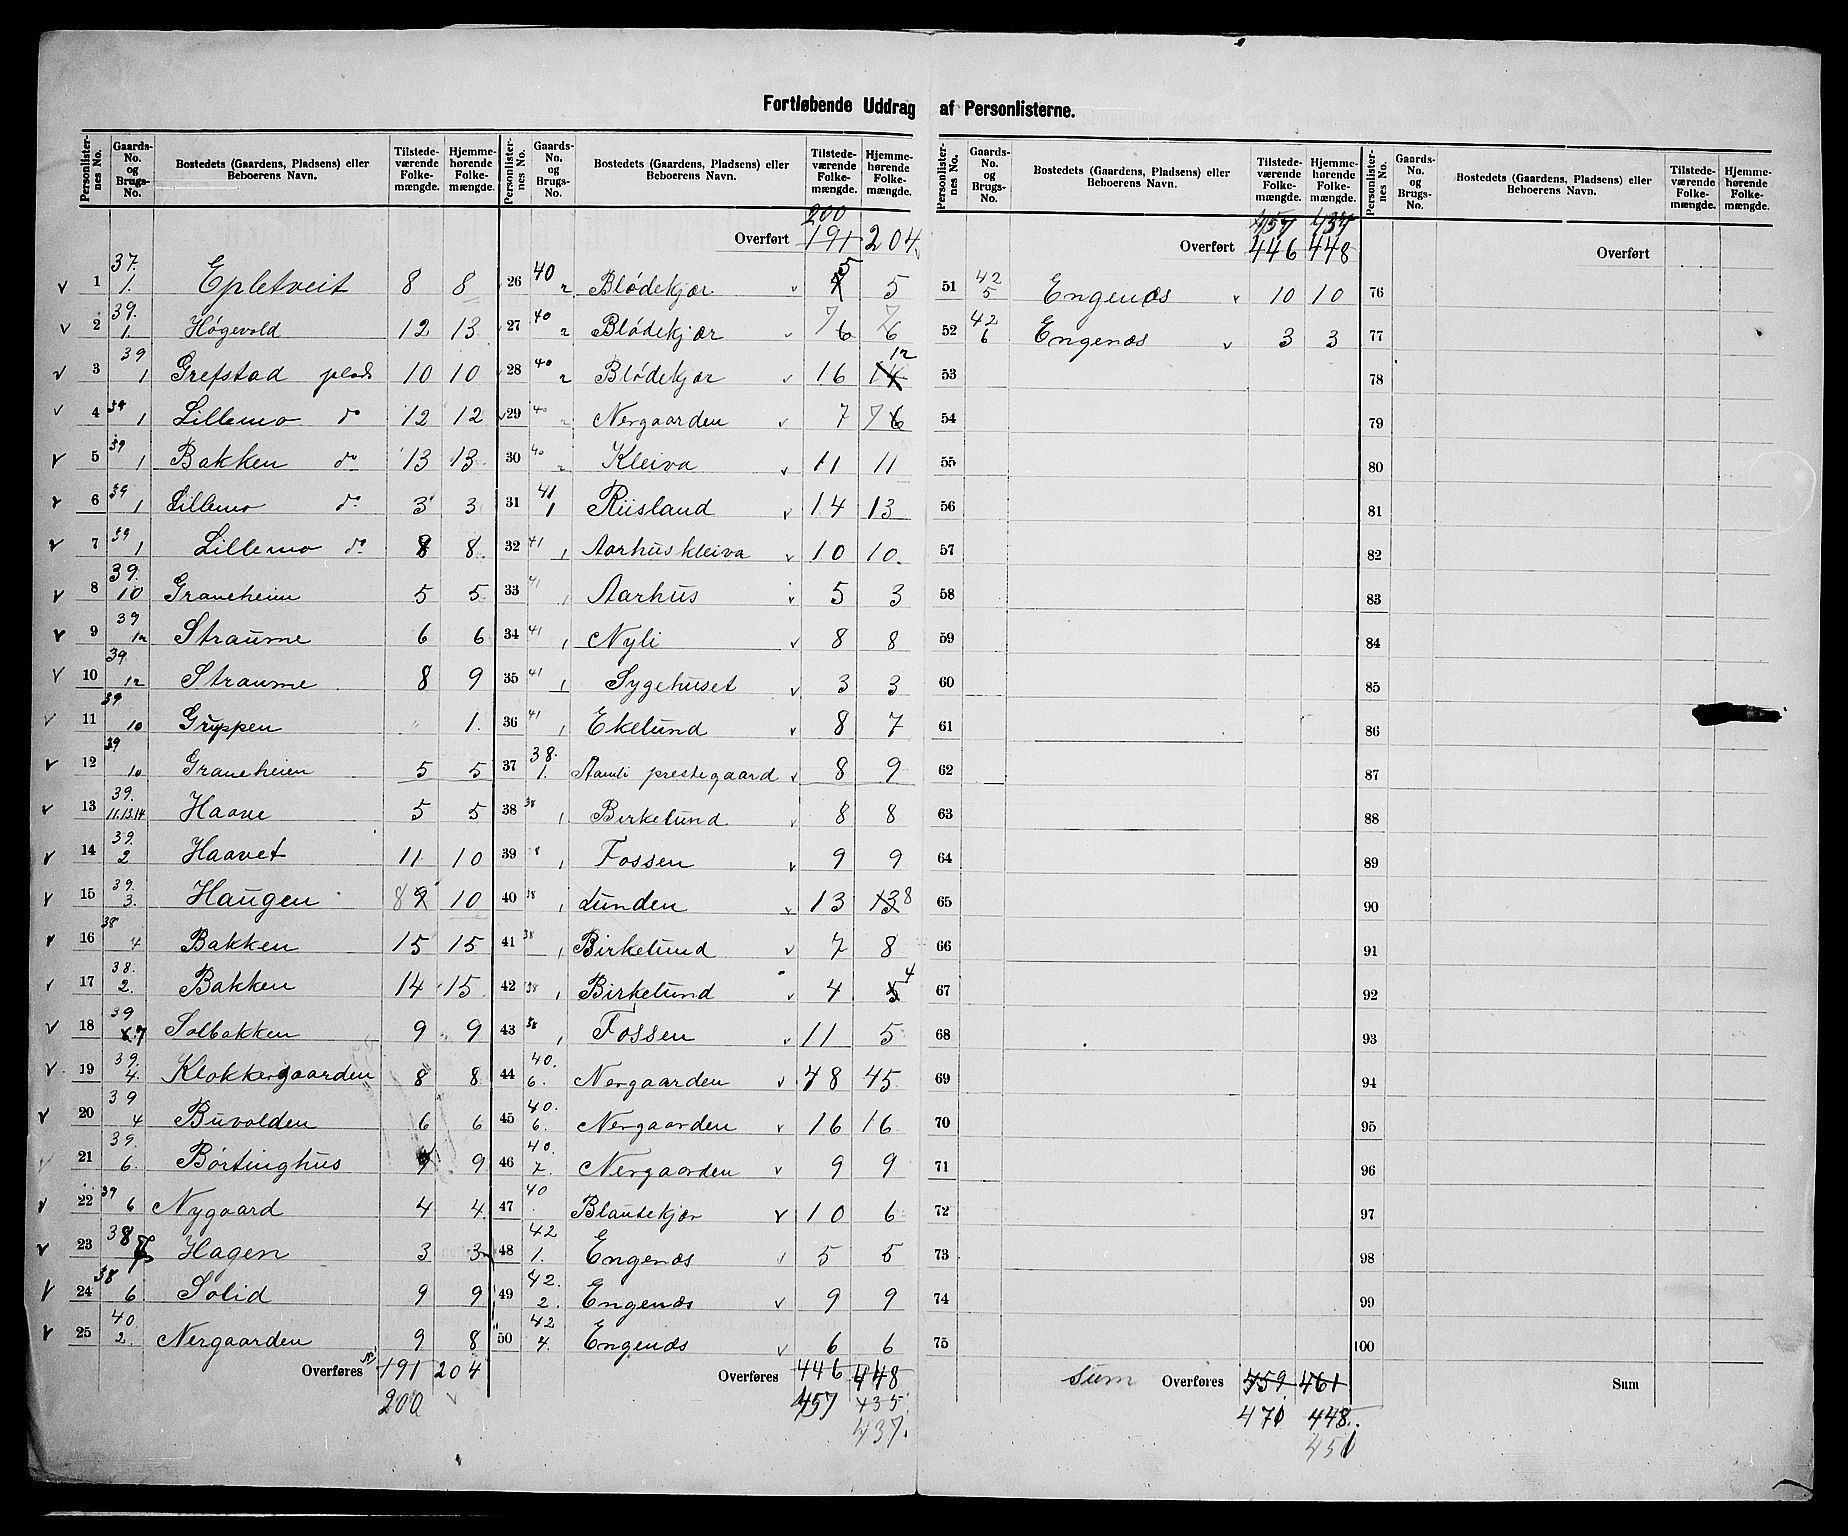 Fortløbende Uddrag af Personlisterne.
Personlister-nes No. | Gaards-No. og Brugs-No. | Bostedets (Gaardens, Pladsens) eller Beboerens Navn. | Tilstede-værende Folke-mængde. | Hjemme-hørende Folke-mængde.
1 37. 1. Epletveit 8 8
2 39. 1. Høgevold 12 13
3 39 1 Grefstad plads 10 10
4 39 1 Lillemo do 12 12
5 39 1 Bakken do 13 13
6 39 1 Lillemo do 3 3
7 39 1 Lillemo do 8 8
8 39. 10 Graneheien 5 5
9 39 12 Straume 6 6
10 39 12 Straume 8 9
11 39 10 Gruppen " 1.
12 39 10 Graneheien 5 5
13 39. 11.13.14 Haave 5 5
14 39. 2 Haavet 11 10
15 39. 3. Haugen 8 9 10
16 38 4 Bakken 15 15
17 38. 2. Bakken 14 15
18 39 7 Solbakken 9 9
19 39. 4. Klokkergaarden 8 8
20 39 4 Buvolden 6 6
21 39. 6. Børtinghus 9 9
22 39 6 Nygaard 4 4
23 38 Hagen 3 3
24 38 6 Solid 9 9
25 40. 2. Nergaarden 9 8
Overføres 191 204
200
Personlister-nes No. | Gaards-No. og Brugs-No. | Bostedets (Gaardens, Pladsens) eller Beboerens Navn. | Tilstede-værende Folke-mængde. | Hjemme-hørende Folke-mængde.
200
Overført 191 204
26 40 2 Blødekjær 5 5
27 40 2 Blødekjær 7 6 7 6
28 40 2 Blødekjær 16 14 12
29 40 2 Nergaarden 7 7 6
30 40 2 Kleiva 11 11
31 41 1 Riisland 14 13
32 41 1 Aarhuskleiva 10 10.
33 41 1 Aarhus 5 3
34 41 1 Nyli 8 8
35 41 1 Sygehuset 3 3
36 41 1 Ekelund 8 7
37 38. 1. Aamli prestegaard 8 9
38 38 1 Birkelund 8 8
39 38 1 Fossen 9 9
40 38 1 Lunden 13 13 8
41 38 1 Birkelund 7 8
42 38 1 Birkelund 4 5 4
43 38 1 Fossen 11 5
44 40. 6. Nergaarden 48 45
45 40. 6. Nergaarden 16 16
46 40. 7. Nergaarden 9 9
47 40 Blautekjær 10 6
48 42 1. Engenæs 5 5
49 42. 2. Engenæs 9 9
50 42 4. Engenæs 6 6
Overføres 446 448
457 435
437.
Personlister-nes No. | Gaards-No. og Brugs-No. | Bostedets (Gaardens, Pladsens) eller Beboerens Navn. | Tilstede-værende Folke-mængde. | Hjemme-hørende Folke-mængde.
457 437
Overført 446 448
51 42 5 Engenæs 10 10
52 42 6 Engenæs 3 3
53
54
55
56
57
58
59
60
61
62
63
64
65
66
67
68
69
70
71
72
73
74
75
Sum Overføres 459. 461
470 448.
450
Personlister-nes No. | Gaards-No. og Brugs-No. | Bostedets (Gaardens, Pladsens) eller Beboerens Navn. | Tilstede-værende Folke-mængde. | Hjemme-hørende Folke-mængde.
Overført
76
77
78
79
80
81
82
83
84
85
86
87
88
89
90
91
92
93
94
95
96
97
98
99
100
Sum